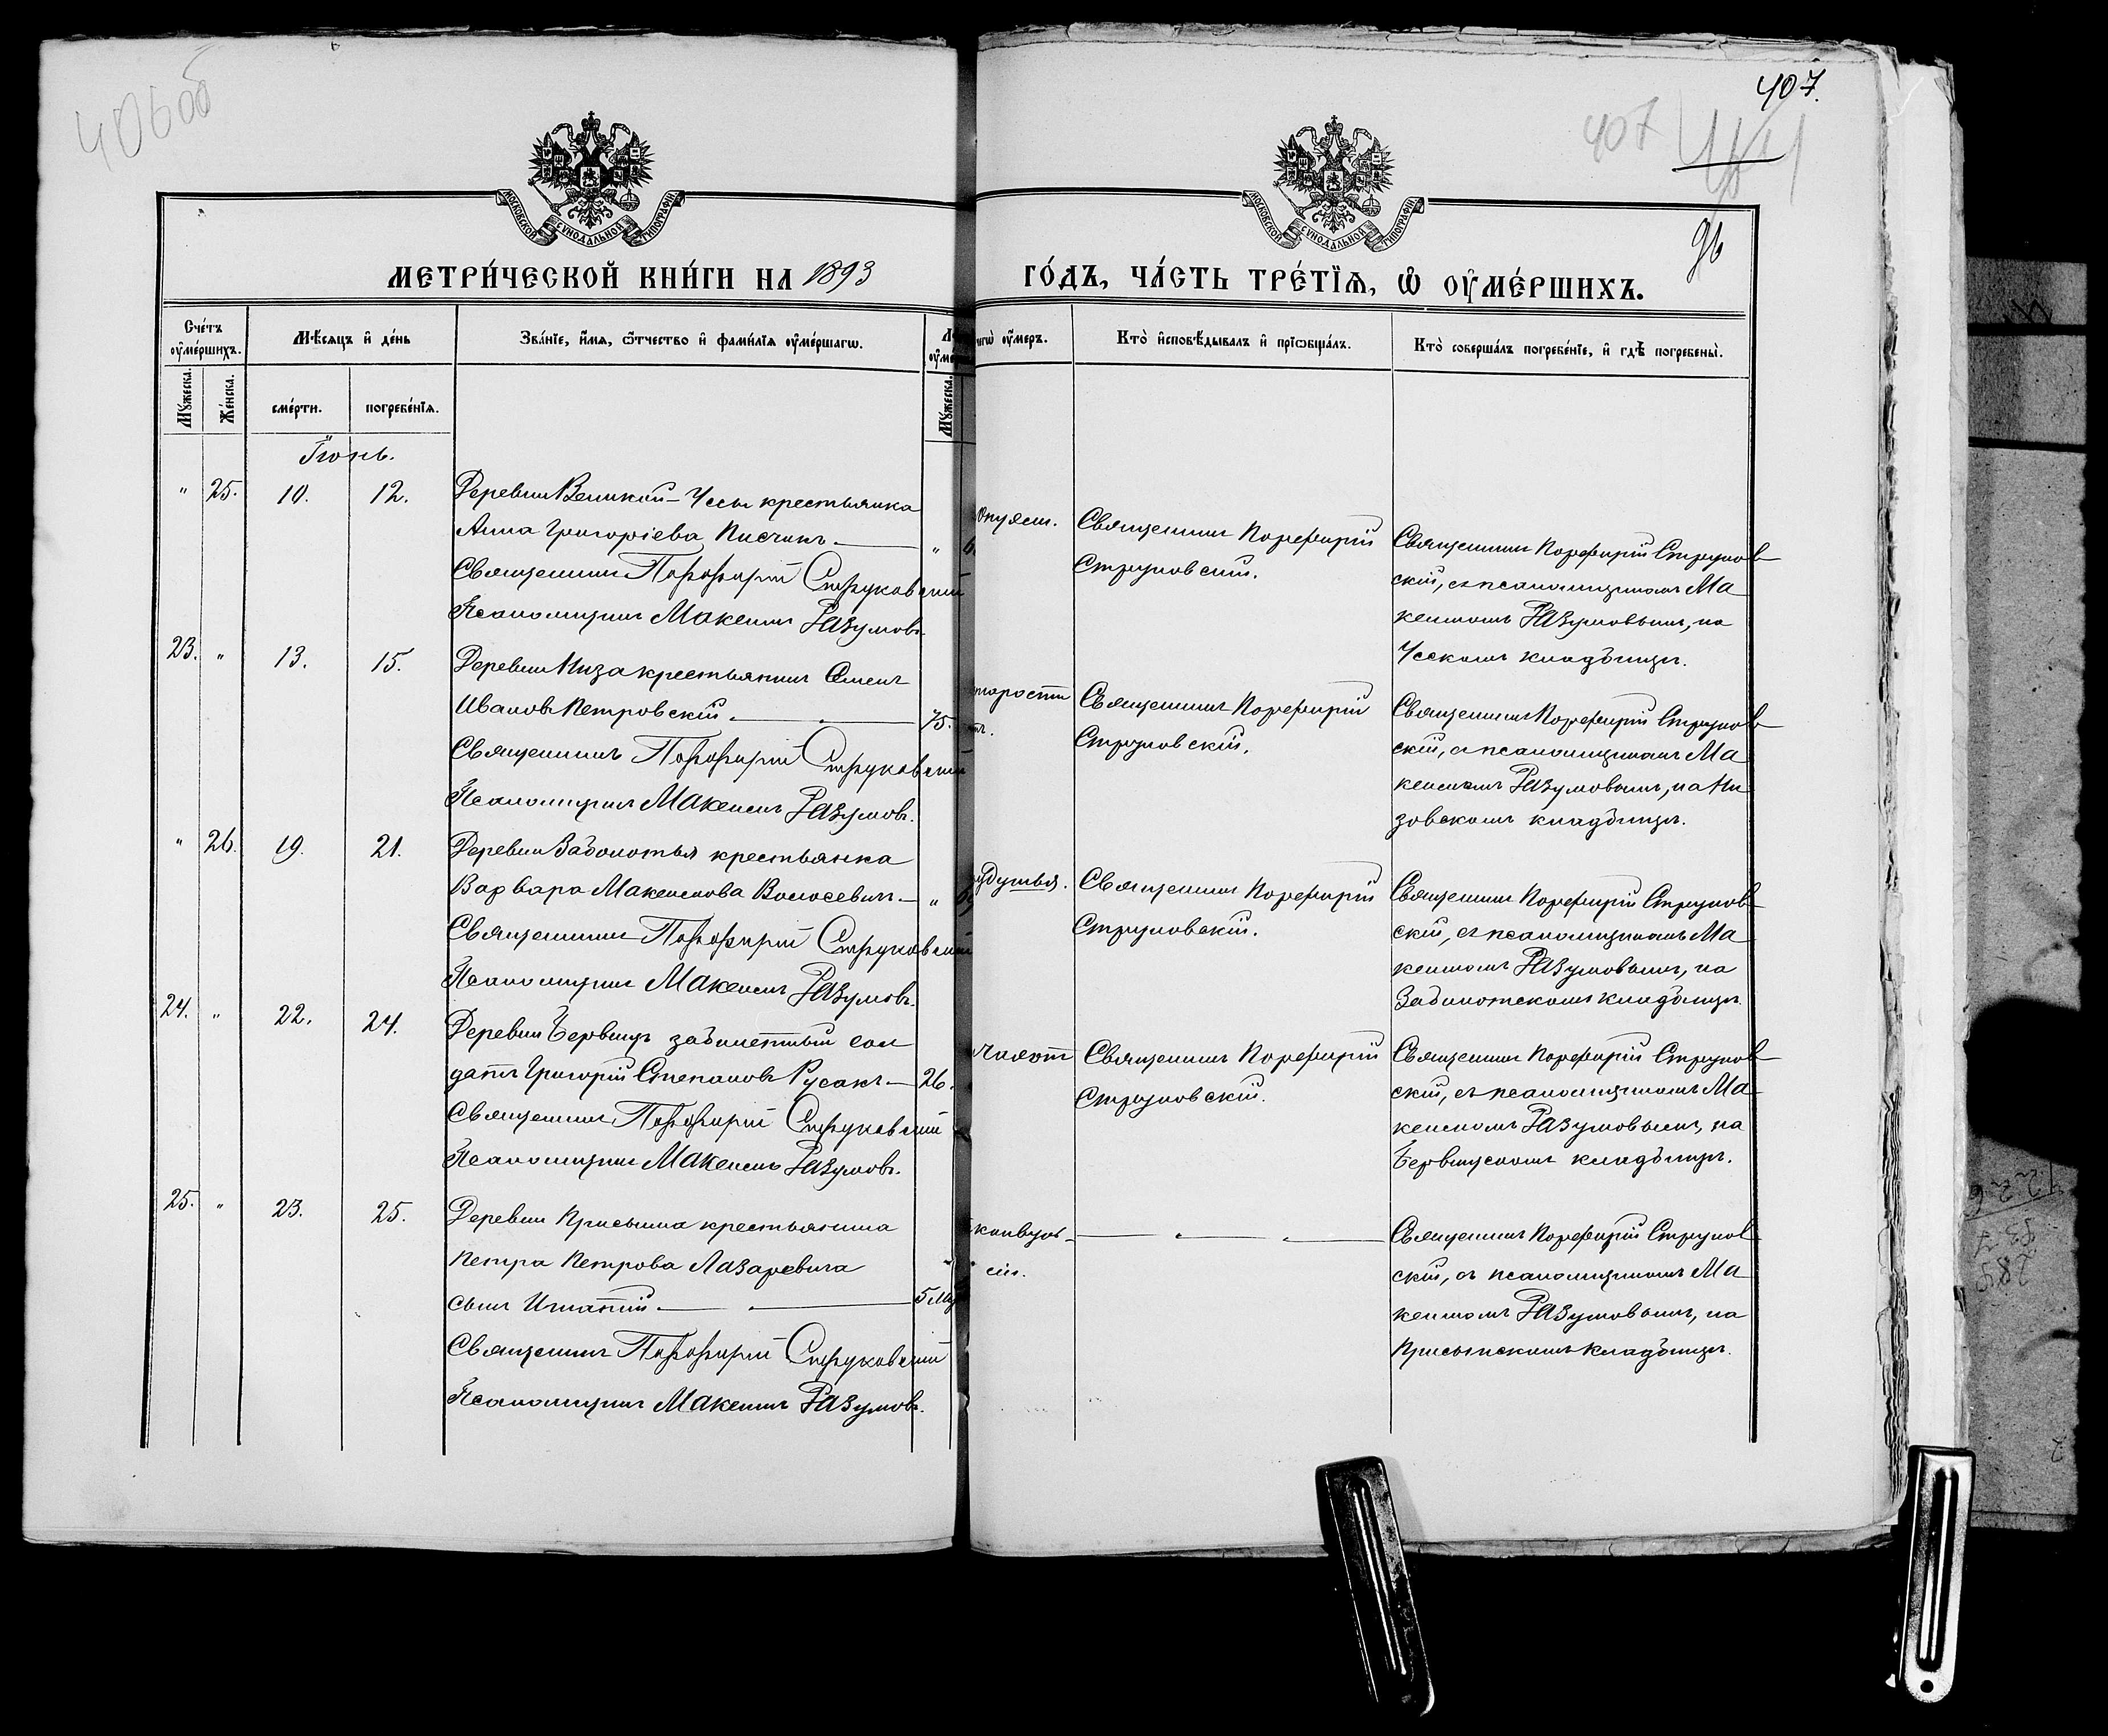 406об
407.
407
96
МОСКОВСКОЙ СѴНОДАЛЬНОЙ ТИПОГРАФІИ
МОСКОВСКОЙ СѴНОДАЛЬНОЙ ТИПОГРАФІИ
МЕТРИ́ЧЕСКОЙ КНИ́ГИ НА 1893
ГО́ДЪ, ЧА́СТЬ ТРЕ́ТЇѦ, Ѿ ОУ҆МЕ́РШИХЪ.
Сче́тъ оу҆ме́ршихъ.
Мѣ́сяцъ и҆ де́нь
Зва́нїе, и҆́мѧ, ѻ҆́тчество и҆ фами́лїѧ оу҆ме́ршагѡ.
оу҆мер.
Кто̀ и҆сповѣ́дывалъ и҆ прїѡбща́лъ.
Кто̀ соверша́лъ погребе́нїе, и҆ гдѣ̀ погребены̀.
Мꙋ́жеска.
Же́нска.
сме́рти.
погребе́нїѧ.
Мꙋ́жеска.
Іюнь.
" 25. 10. 12. Деревни Великой-Чссы крестьянка
Анна Григоріева Писчикъ. "
Священникъ Порфирій Струковскій
Псаломщикъ Максимъ Разумовъ.
Священникъ Порфирій
Струковскій.
Священникъ Порфирій Струков
скій, съ псаломщикомъ Ма
ксимомъ Разумовымъ, на
Чсскомъ кладбищѣ.
23. " 13. 15. Деревни Низа крестьянинъ Семенъ
Ивановъ Петровскій. 75.
Священникъ Порфирій Струковскій
Псаломщикъ Максимъ Разумовъ.
старости
Священникъ Порфирій
Струковскій.
Священникъ Порфирій Струков
скій, съ псаломщикомъ Ма
ксимомъ Разумовымъ, на Ни
зовскомъ кладбищѣ.
" 26. 19. 21. Деревни Заболотья крестьянка
Варвара Максимова Волосевичъ. "
Священникъ Порфирій Струковскій
Псаломщикъ Максимъ Разумовъ.
удушья.
Священникъ Порфирій
Струковскій.
Священникъ Порфирій Струков
скій, съ псаломщикомъ Ма
ксимомъ Разумовымъ, на
Заболотскомъ кладбищѣ.
24. " 22. 24. Деревни забилетный сол
датъ Григорій Степановъ Русакъ 26.
Священникъ Порфирій Струковскій
Псаломщикъ Максимъ Разумовъ.
Священникъ Порфирій
Струковскій.
Священникъ Порфирій Струков
скій, съ псаломщикомъ Ма
ксимомъ Разумовымъ, на
кладбищѣ.
25. " 23. 25. Деревни Присынка крестьянина
Петра Петрова Лазаревича
сынъ Игнатій. 5 м
Священникъ Порфирій Струковскій
Псаломщикъ Максимъ Разумовъ.
конвуль-
сіи.
Священникъ Порфирій Струков
скій, съ псаломщикомъ Ма
ксимомъ Разумовымъ, на
Присынскомъ кладбищѣ.